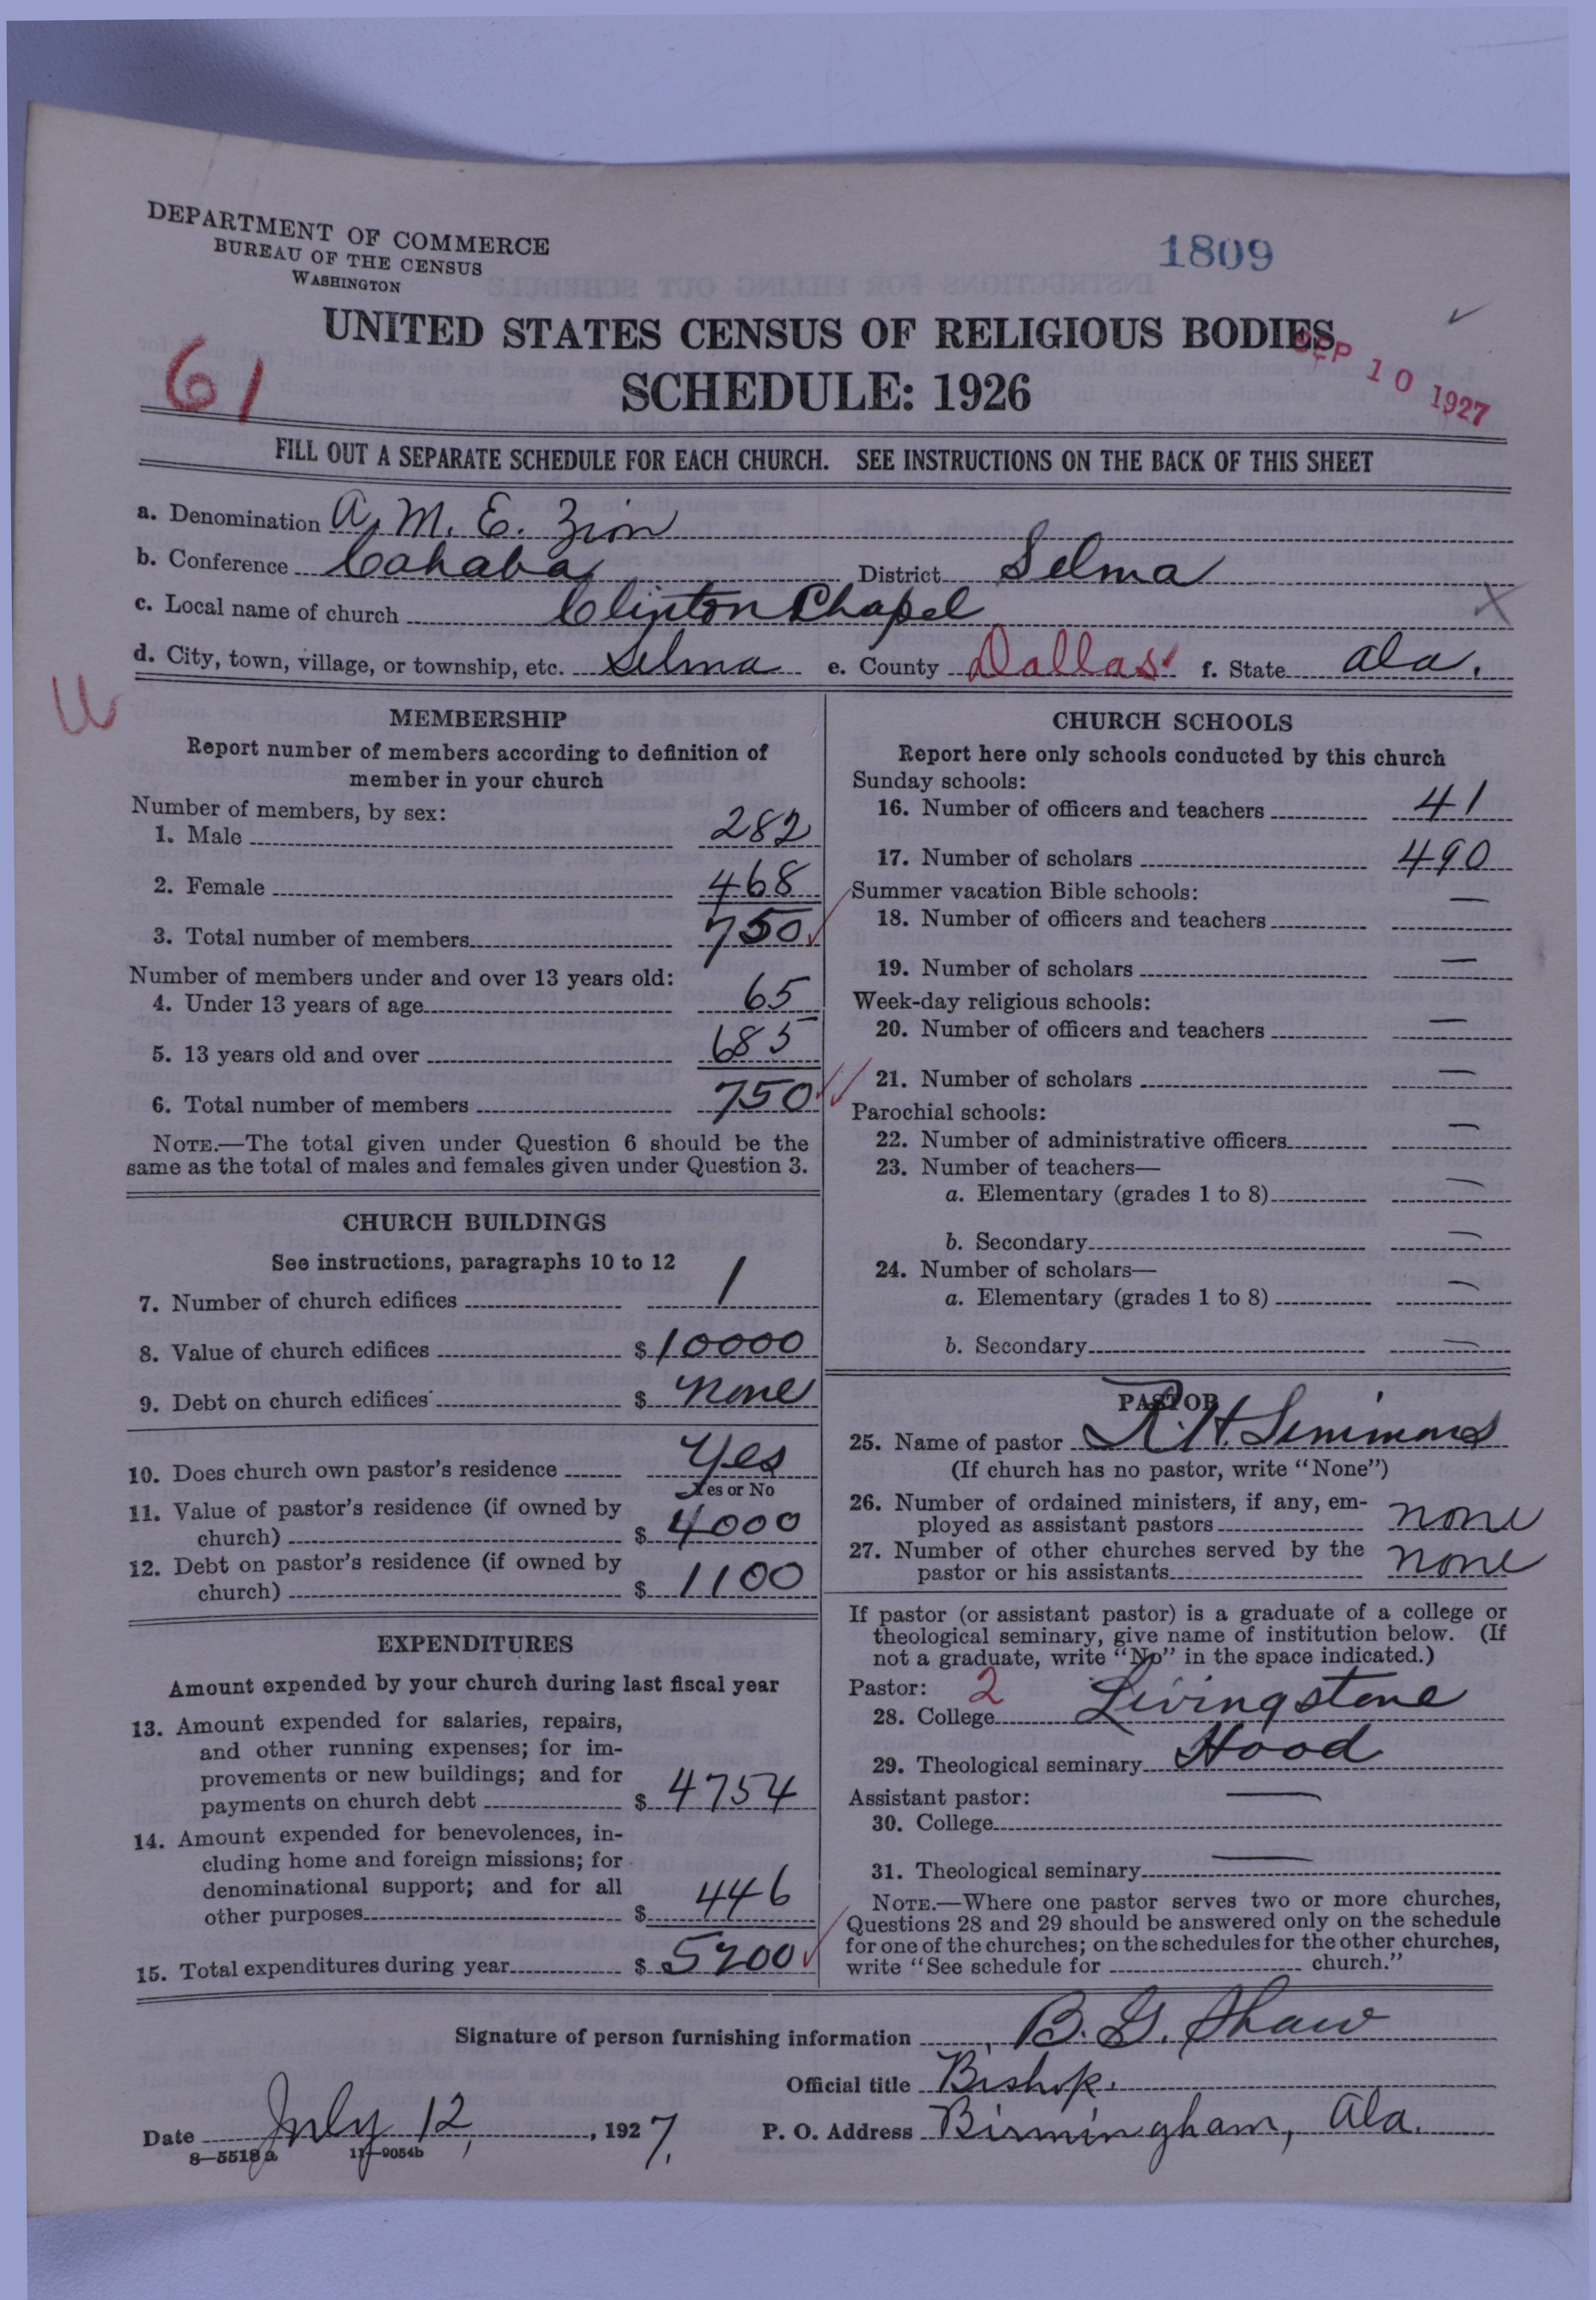 DEPARTMENT OF COMMERCE
BUREAU OF THE CENSUS
WASHINGTON
1809
UNITED STATES CENSUS OF RELIGIOUS BODIES
SEP 10 1927
61
SCHEDULE: 1926
FILL OUT A SEPARATE SCHEDULE FOR EACH CHURCH. SEE INSTRUCTIONS ON THE BACK OF THIS SHEET
a. Denomination A. M. E. Zion
b. Conference Cahaba District Selma
c. Local name of church Clinton Chapel
d. City, town, village, or township, etc. Selma e. County Dallas f. State Ala.
MEMBERSHIP
Report number of members according to definition of
member in your church
Number of members, by sex:
1. Male 282
2. Female 468
3. Total number of members 750
Number of members under and over 13 years old:
4. Under 13 years of age 65
5. 13 years old and over 685
6. Total number of members 750
NOTE.—The total given under Question 6 should be the
same as the total of males and females given under Question 3.
CHURCH BUILDINGS
See instructions, paragraphs 10 to 12
7. Number of church edifices 1
8. Value of church edifices $ 10000
9. Debt on church edifices $ none
10. Does church own pastor's residence Yes
Yes or No
11. Value of pastor's residence (if owned by
church) $ 4000
12. Debt on pastor's residence (if owned by
church) $ 1100
EXPENDITURES
Amount expended by your church during last fiscal year
13. Amount expended for salaries, repairs,
and other running expenses; for im-
provements or new buildings; and for
payments on church debt $ 4754
14. Amount expended for benevolences, in-
cluding home and foreign missions; for
denominational support; and for all
other purposes $ 446
15. Total expenditures during year $ 5200
CHURCH SCHOOLS
Report here only schools conducted by this church
Sunday schools:
16. Number of officers and teachers 41
17. Number of scholars 490
Summer vacation Bible schools:
18. Number of officers and teachers —
19. Number of scholars —
Week-day religious schools:
20. Number of officers and teachers —
21. Number of scholars —
Parochial schools:
22. Number of administrative officers —
23. Number of teachers—
a. Elementary (grades 1 to 8) —
b. Secondary —
24. Number of scholars—
a. Elementary (grades 1 to 8) —
b. Secondary —
PASTOR
25. Name of pastor R. H. Simmons
(If church has no pastor, write "None")
26. Number of ordained ministers, if any, em-
ployed as assistant pastors none
27. Number of other churches served by the
pastor or his assistants none
If pastor (or assistant pastor) is a graduate of a college or
theological seminary, give name of institution below. (If
not a graduate, write "No" in the space indicated.)
Pastor: 2
28. College Livingstone
29. Theological seminary Hood
Assistant pastor:
30. College —
31. Theological seminary —
NOTE.—Where one pastor serves two or more churches,
Questions 28 and 29 should be answered only on the schedule
for one of the churches; on the schedules for the other churches,
write "See schedule for church."
Signature of person furnishing information B. G. Shaw
Official title Bishop.
Date July 12, 1927. P. O. Address Birmingham, Ala.
8—5518a 11—9054b